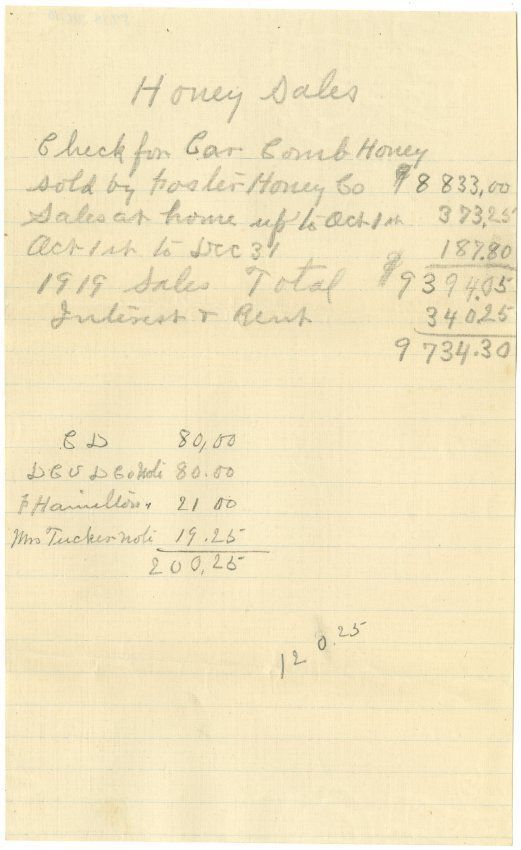 Honey Sales
Check for Car Comb Honey
sold by Foster Honey Co $8 833,00
Sales at home up to Oct 1st 373,25
Oct 1st to Dec 31 187.80
1919 Sales Total $9394.05
Interest & Rent 340.25
9 734.30
C D 80,00
80.00
F Hamilton 21 00
Mrs Tucker 19.25
200,25
120.25